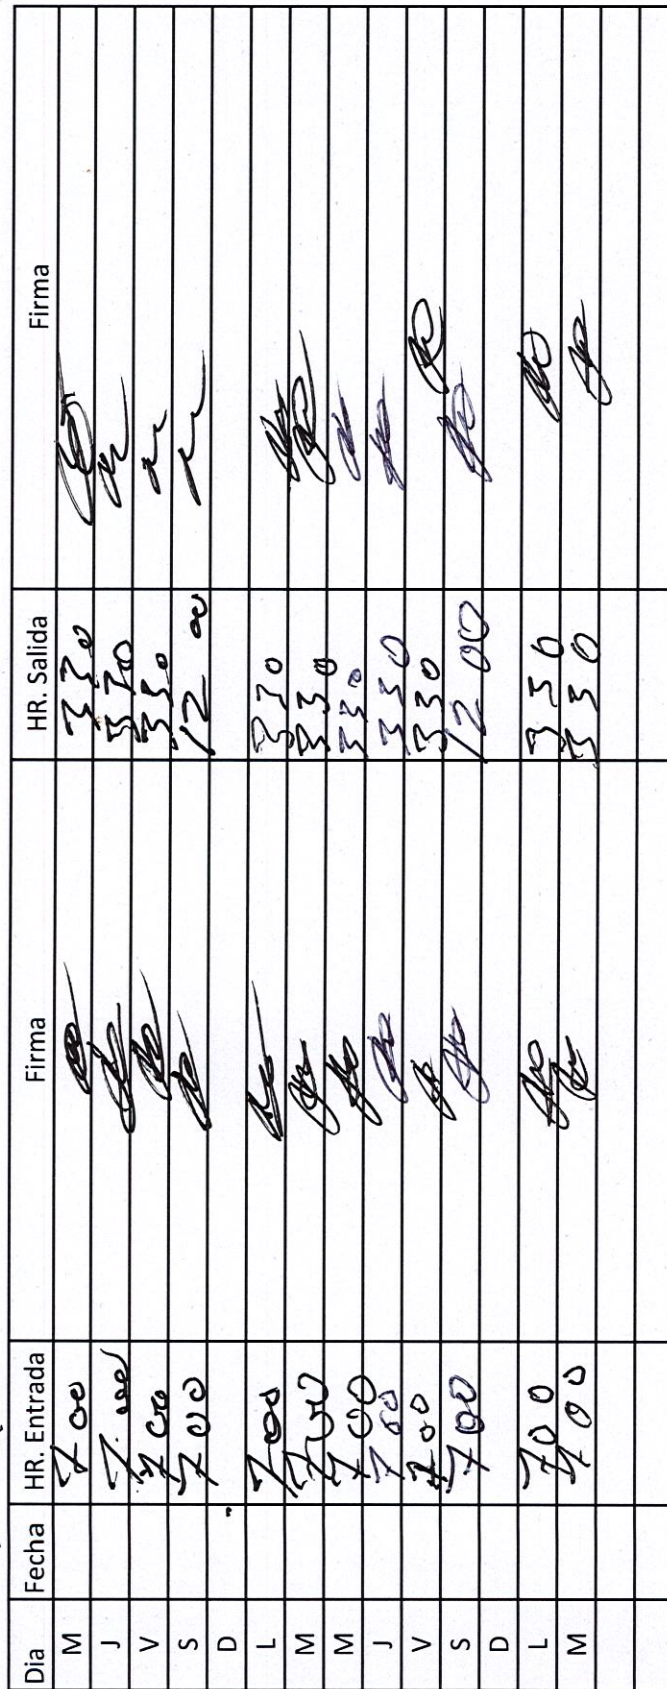 Dia Fecha HR. Entrada Firma HR. Salida Firma
M 700 330
J 7.00 330
V 700 330
S 700 12 00
D
L 700 330
M 700 330
M 700 330
J 700 330
V 700 330
S 700 12 00
D
L 700 330
M 700 330